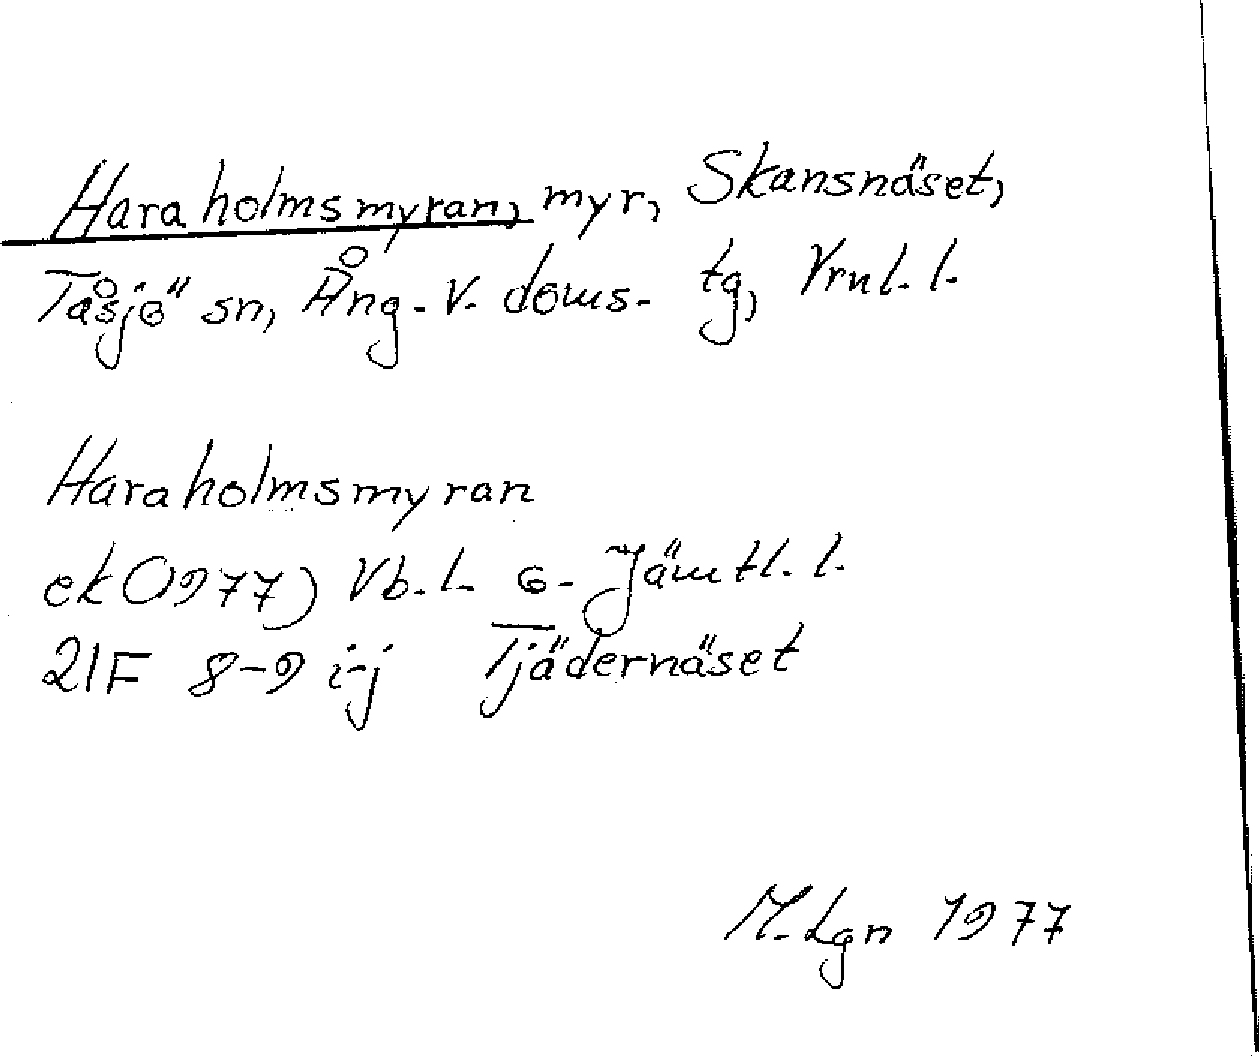 Haraholmsmyran, myr, Skansnäset,
Tåsjö sn, Ång. V. doms. tg, Vrnl. l.
Haraholmsmyran
ek (1977) Vb. l. o. Jämtl. l.
21F 8-9 i-j Tjädernäset
M. Lgn 1977